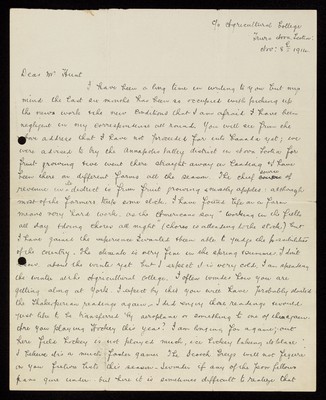 c/o Agricultural College
Truro Nova Scotia
Nov: 8th 1914.
Dear Mr Hunt
I have been a long time in writing to you but my
mind the last six months has been so occupied with picking up
the new work & the new conditions that I am afraid I have been
negligent in my correspondence all round. You will see from the
above address that I have not proceeded far into Canada yet; we
were advised to try the Annapolis Valley district in Nova Scotia for
fruit growing & we went there straight away on landing & I have
been there on different farms all the season. The chief source of
revenue in district is from fruit growing, mostly apples: although
most of the farmers keep some stock. I have found life on a farm
means very hard work, as the Americans say "working in the fields
all day & doing chores all night" (chores is attending to the stock) but
I have gained the experience I wanted & been able to judge the possibilities
of the country. The climate is very fine in the spring & summer: I don't
about the winter yet but I expect it is very cold. I am spending
the winter at the Agricultural College. I often wonder how you are
getting along at York. I expect by this you will have probably started
the Shakesperian readings again. I did enjoy those readings & would
just like to be transferred by aeroplane or something to one of
Are you playing Hockey this year? I am longing for a game; out
here field hockey is not played much, ice hockey taking its place.
I believe it is a much faster game. The Search Group will not figure
in your fixture lists this season. I wonder if any of the poor fellows
have gone under but here it is sometimes difficult to realize that